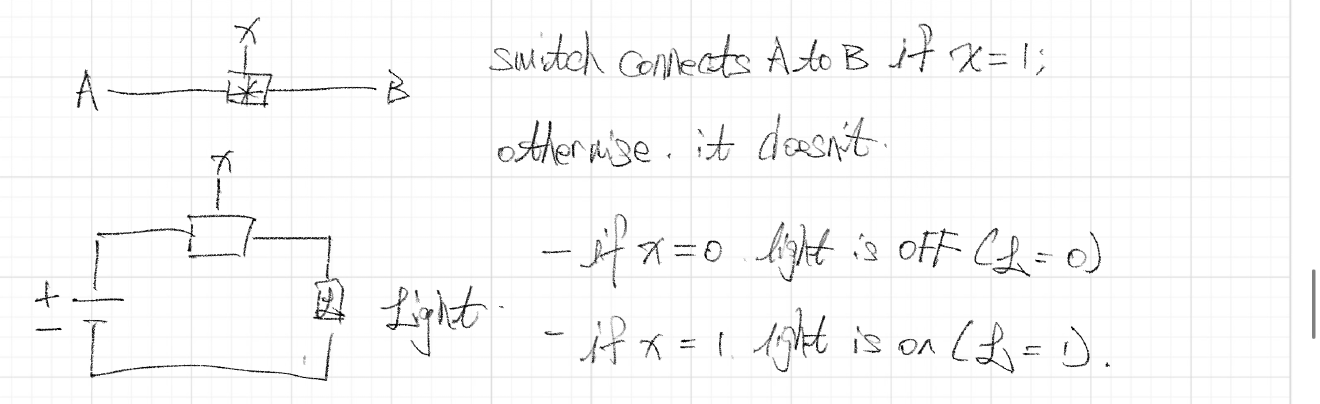 x
A
B
switch connects A to B if x=1;
otherwise. it doesn't.
x
- if x=0 light is OFF (L=0)
+
-
L
Light
- if x=1 light is on (L=1).